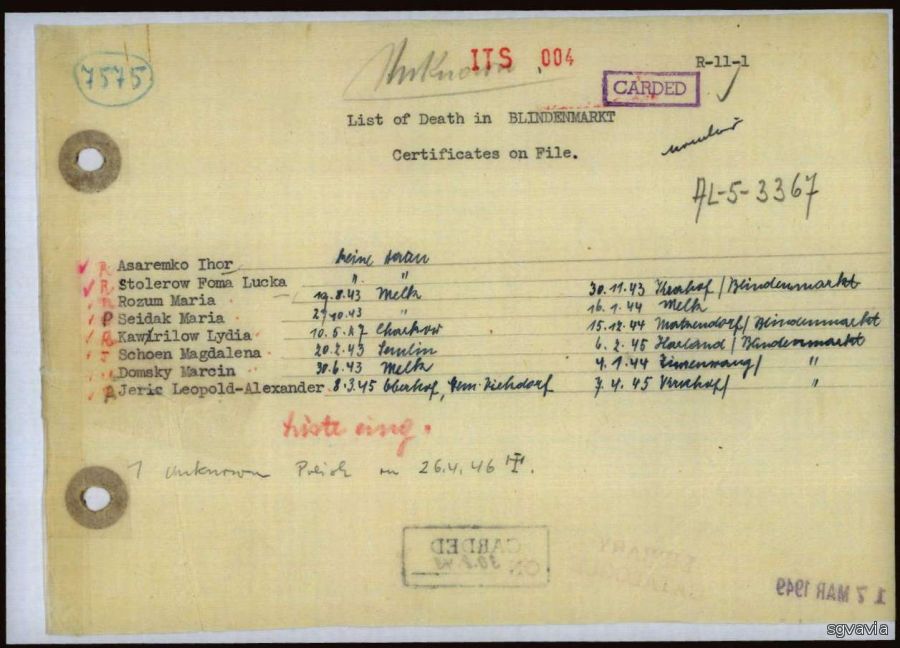 7575
Unknown ITS 004 R-11-1
CARDED
List of Death in BLINDENMARKT
Certificates on File.
AL-5-3367
R Asaremko Ihor keine
R Stolerow Foma Lucka " " 30.11.43 /Blindenmarkt
Rozum Maria 19.8.43 Melk 16.1.44 Melk
Seidak Maria 27.10.43 " 15.12.44 /Blindenmarkt
Kawrilow Lydia Charkow 6.2.45 Harland/Blindenmarkt
Schoen Magdalena 20.2.43 Semlin 4.1.44 / "
Domsky Marcin 30.6.43 Melk 7.4.45 / "
Jeric Leopold-Alexander 8.3.45 Oberhof, Gem. Viehdorf
Liste eing.
1 unknown 26.4.46
CARDED
ON
17 MAR 1949
sgvavia